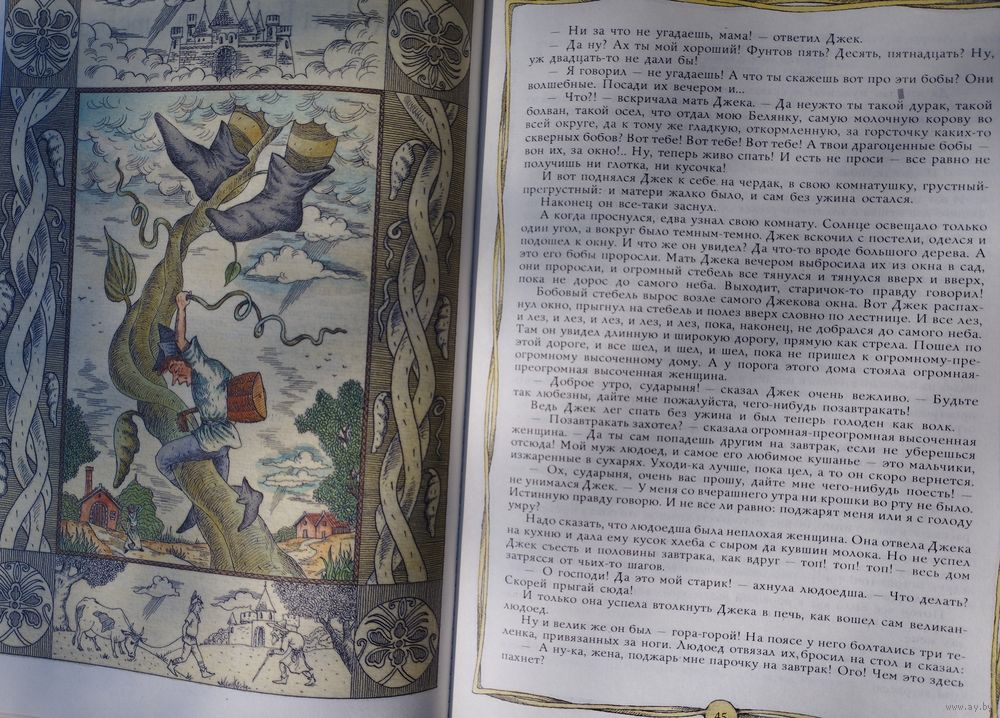 — Ни за что не угадаешь, мама! — ответил Джек.
— Да ну? Ах ты мой хороший! Фунтов пять? Десять, пятнадцать? Ну,
уж двадцать-то не дали бы!
— Я говорил — не угадаешь! А что ты скажешь вот про эти бобы? Они
волшебные. Посади их вечером и...
— Что?! — вскричала мать Джека. — Да неужто ты такой дурак, такой
болван, такой осел, что отдал мою Белянку, самую молочную корову во
всей округе, да к тому же гладкую, откормленную, за горсточку каких-то
скверных бобов? Вот тебе! Вот тебе! Вот тебе! А твои драгоценные бобы —
вон их, за окно!.. Ну, теперь живо спать! И есть не проси — все равно не
получишь ни глотка, ни кусочка!
И вот поднялся Джек к себе на чердак, в свою комнатушку, грустный-
прегрустный: и матери жалко было, и сам без ужина остался.
Наконец он все-таки заснул.
А когда проснулся, едва узнал свою комнату. Солнце освещало только
один угол, а вокруг было темным-темно. Джек вскочил с постели, оделся и
подошел к окну. И что же он увидел? Да что-то вроде большого дерева. А
это его бобы проросли. Мать Джека вечером выбросила их из окна в сад,
они проросли, и огромный стебель все тянулся и тянулся вверх и вверх,
пока не дорос до самого неба. Выходит, старичок-то правду говорил!
Бобовый стебель вырос возле самого Джекова окна. Вот Джек распах-
нул окно, прыгнул на стебель и полез вверх словно по лестнице. И все лез,
и лез, и лез, и лез, и лез, и лез, пока, наконец, не добрался до самого неба.
Там он увидел длинную и широкую дорогу, прямую как стрела. Пошел по
этой дороге, и все шел, и шел, и шел, пока не пришел к огромному-пре-
огромному высоченному дому. А у порога этого дома стояла огромная-
преогромная высоченная женщина.
— Доброе утро, сударыня! — сказал Джек очень вежливо. — Будьте
так любезны, дайте мне пожалуйста, чего-нибудь позавтракать!
Ведь Джек лег спать без ужина и был теперь голоден как волк.
— Позавтракать захотел? — сказала огромная-преогромная высоченная
женщина. — Да ты сам попадешь другим на завтрак, если не уберешься
отсюда! Мой муж людоед, и самое его любимое кушанье — это мальчики,
изжаренные в сухарях. Уходи-ка лучше, пока цел, а то он скоро вернется.
— Ох, сударыня, очень вас прошу, дайте мне чего-нибудь поесть! —
не унимался Джек. — У меня со вчерашнего утра ни крошки во рту не было.
Истинную правду говорю. И не все ли равно: поджарят меня или я с голоду
умру?
Надо сказать, что людоедша была неплохая женщина. Она отвела Джека
на кухню и дала ему кусок хлеба с сыром да кувшин молока. Но не успел
Джек съесть и половины завтрака, как вдруг — топ! топ! топ! — весь дом
затрясся от чьих-то шагов.
— О господи! Да это мой старик! — ахнула людоедша. — Что делать?
Скорей прыгай сюда!
И только она успела втолкнуть Джека в печь, как вошел сам великан-
людоед.
Ну и велик же он был — гора-горой! На поясе у него болтались три те-
ленка, привязанных за ноги. Людоед отвязал их, бросил на стол и сказал:
— А ну-ка, жена, поджарь мне парочку на завтрак! Ого! Чем это здесь
пахнет?
45
www.ay.by